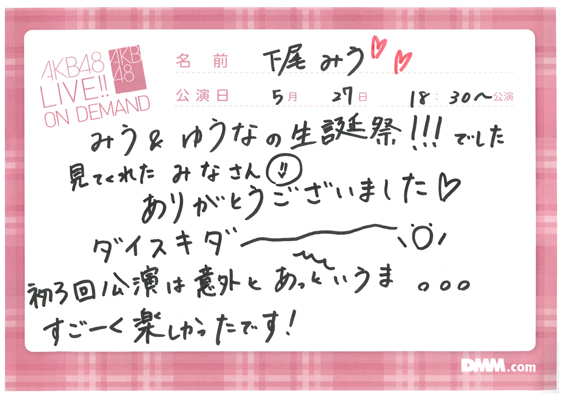 AKB48
LIVE!!
ON DEMAND
AKB
48
名前 下尾みう
公演日 5月 27日 18:30〜公演
みう&ゆうなの生誕祭!!!でした
見てくれた みなさん
ありがとうございました♡
ダイスキダ
初3回公演は意外とあっとゆうま 。。。
すごーく楽しかったです!
DMM.com